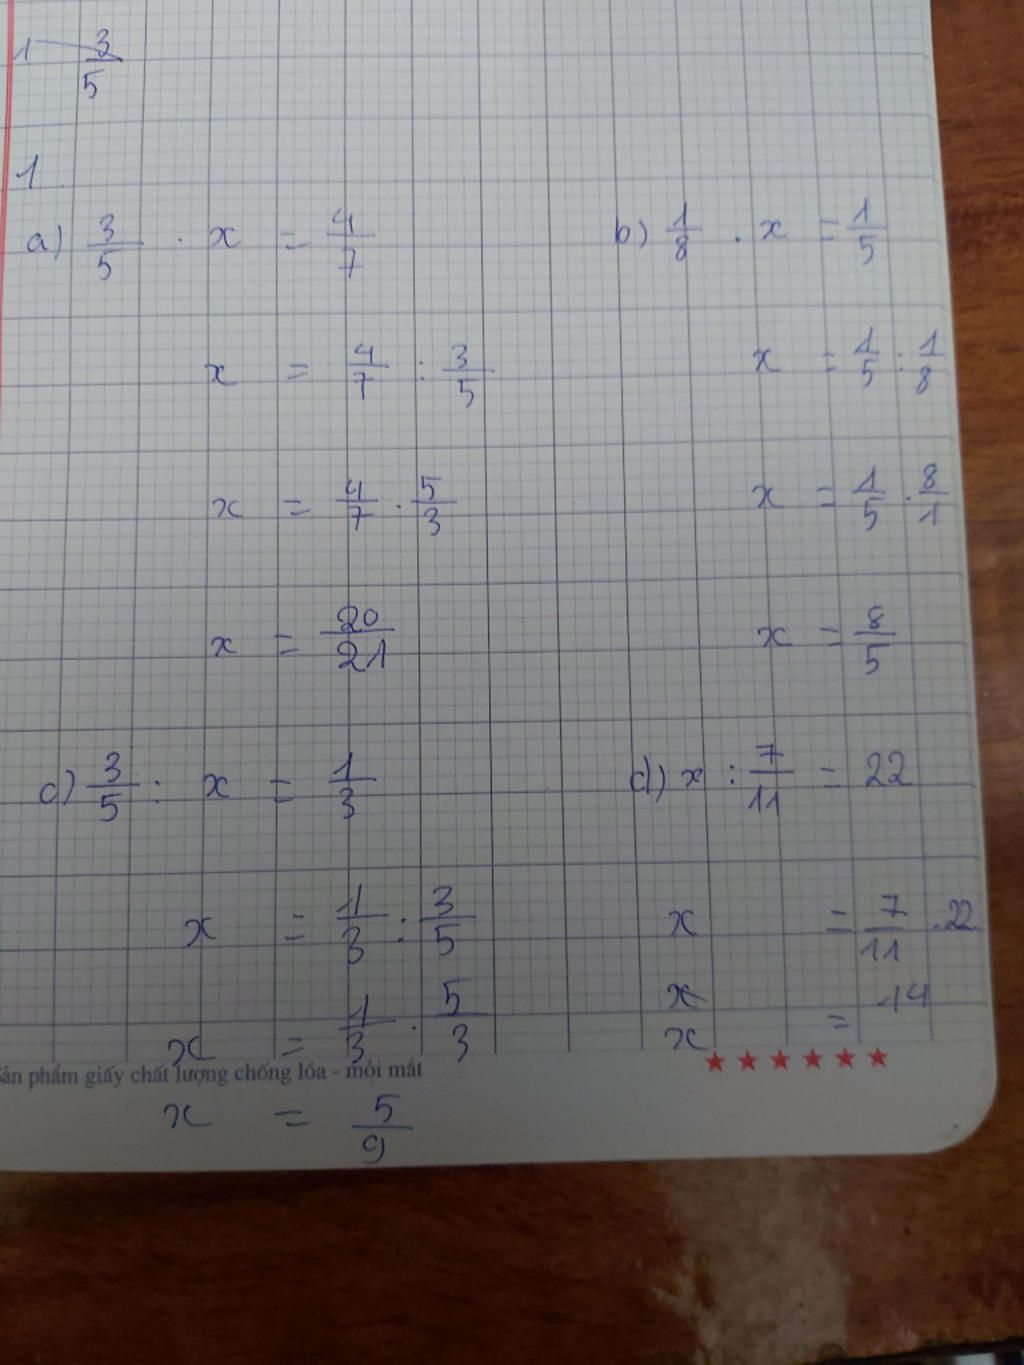 1 3/5
1
a) 3/5 . x = 4/7
x = 4/7 : 3/5
x = 4/7 . 5/3
x = 20/21
b) 1/8 . x = 1/5
x = 1/5 : 1/8
x = 1/5 . 8/1
x = 8/5
c) 3/5 : x = 1/3
x = 1/3 : 3/5
x = 1/3 . 5/3
x = 5/9
d) x : 7/11 = 22
x = 7/11 .22
x
x = 14
Sản phẩm giấy chất lượng chống lóa - mỏi mắt